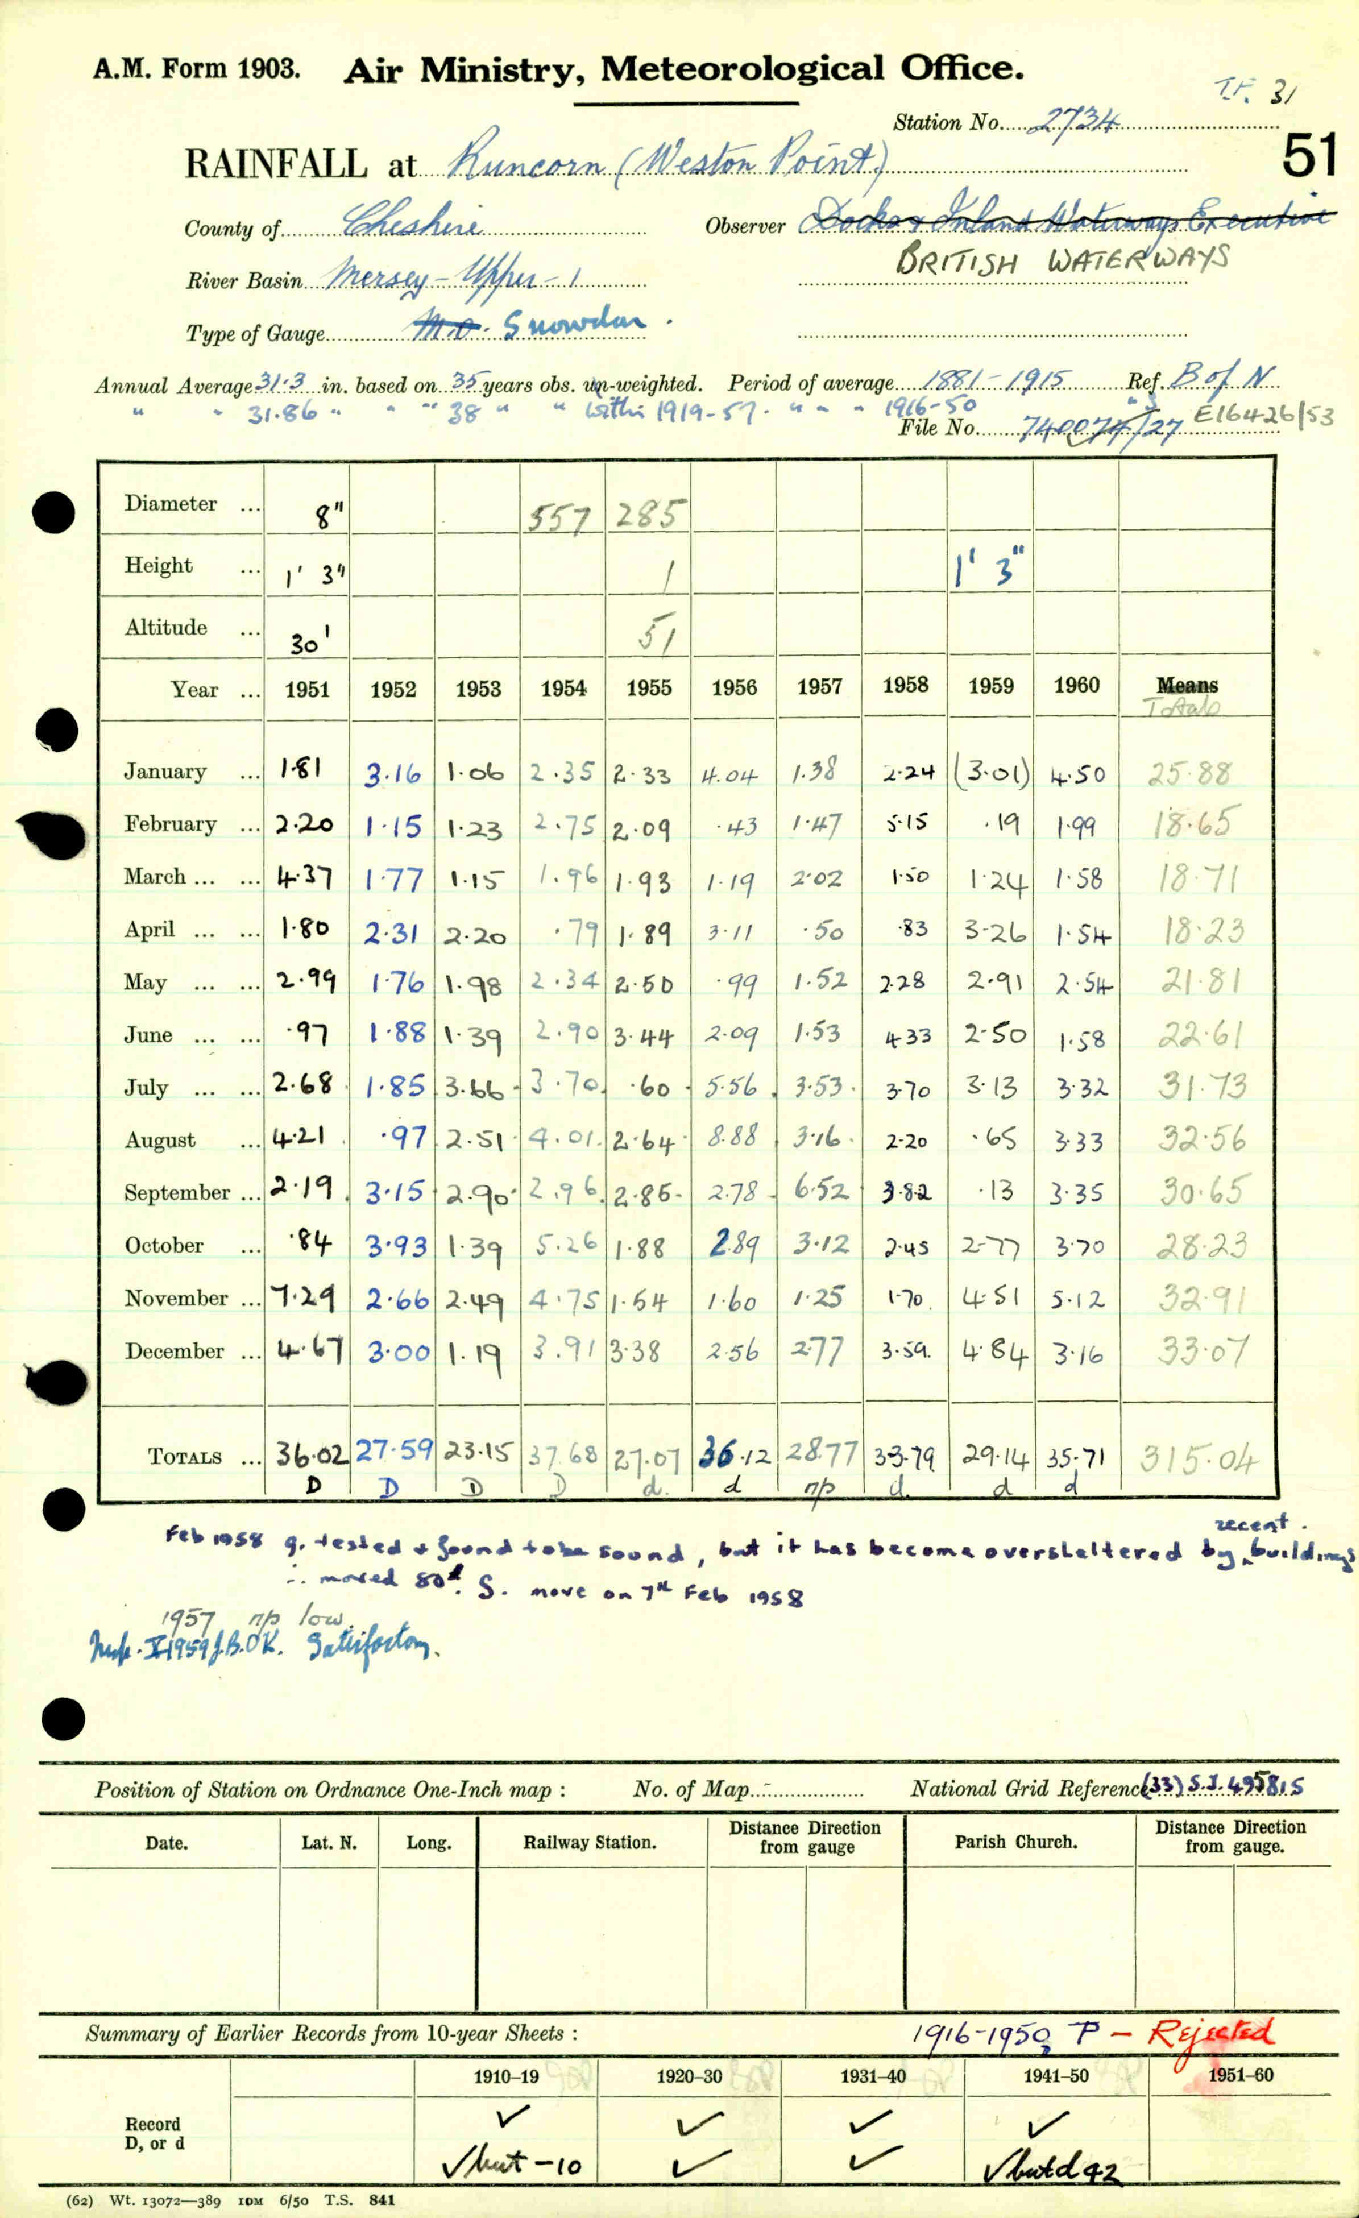 A.M. Form 1903. Air Ministry, Meteorological Office.
31
Station No. 2734
51
RAINFALL at Runcorn (Weston Point)
County of Cheshire Observer Docks & Inland Waterways Executive
BRITISH WATERWAYS
River Basin Mersey - Upper - 1
Type of Gauge M.O. Snowdon.
Annual Average 31.3 in. based on 35 years obs. un-weighted. Period of average 1881-1915 Ref. B of N
" " 31.86 " " " 38 " " within 1919-57. " " " 1916-50
File No. 740074/27 E16426/53
Diameter ... 8" 557 285
Height ... 1' 3" 1 1' 3"
Altitude ... 30' 51
Year ... 1951 1952 1953 1954 1955 1956 1957 1958 1959 1960 Means
Totals
January ... 1.81 3.16 1.06 2.35 2.33 4.04 1.38 2.24 (3.01) 4.50 25.88
February ... 2.20 1.15 1.23 2.75 2.09 .43 1.47 5.15 .19 1.99 18.65
March ... ... 4.37 1.77 1.15 1.96 1.93 1.19 2.02 1.50 1.24 1.58 18.71
April ... ... 1.80 2.31 2.20 .79 1.89 3.11 .50 .83 3.26 1.54 18.23
May ... ... 2.99 1.76 1.98 2.34 2.50 .99 1.52 2.28 2.91 2.54 21.81
June ... ... .97 1.88 1.39 2.90 3.44 2.09 1.53 4.33 2.50 1.58 22.61
July ... ... 2.68 1.85 3.66 3.70 .60 5.56 3.53 3.70 3.13 3.32 31.73
August ... 4.21 .97 2.51 4.01 2.64 8.88 3.16 2.20 .65 3.33 32.56
September ... 2.19 3.15 2.90 2.96 2.85 2.78 6.52 3.82 .13 3.35 30.65
October ... .84 3.93 1.39 5.26 1.88 2.89 3.12 2.45 2.77 3.70 28.23
November ... 7.29 2.66 2.49 4.75 1.54 1.60 1.25 1.70 4.51 5.12 32.91
December ... 4.67 3.00 1.19 3.91 3.38 2.56 2.77 3.59 4.84 3.16 33.07
TOTALS ... 36.02 27.59 23.15 37.68 27.07 36.12 28.77 33.79 29.14 35.71 315.04
D D D D d. d np d. d d
Feb 1958 g. tested & found to be sound, but it has become oversheltered by recent buildings
∴ moved 80d. S. move on 7th Feb 1958
1957 np low.
Insp. X 1959 J.B. OK. Satisfactory.
Position of Station on Ordnance One-Inch map : No. of Map National Grid Reference (33) S.J. 495815
Date. Lat. N. Long. Railway Station. Distance from Direction gauge Parish Church. Distance from Direction gauge.
Summary of Earlier Records from 10-year Sheets : 1916-1950 P - Rejected
1910–19 1920–30 1931–40 1941–50 1951–60
Record ✓ ✓ ✓ ✓
D, or d ✓but -10 ✓ ✓ ✓but d 42
(62) Wt. 13072—389 10M 6/50 T.S. 841